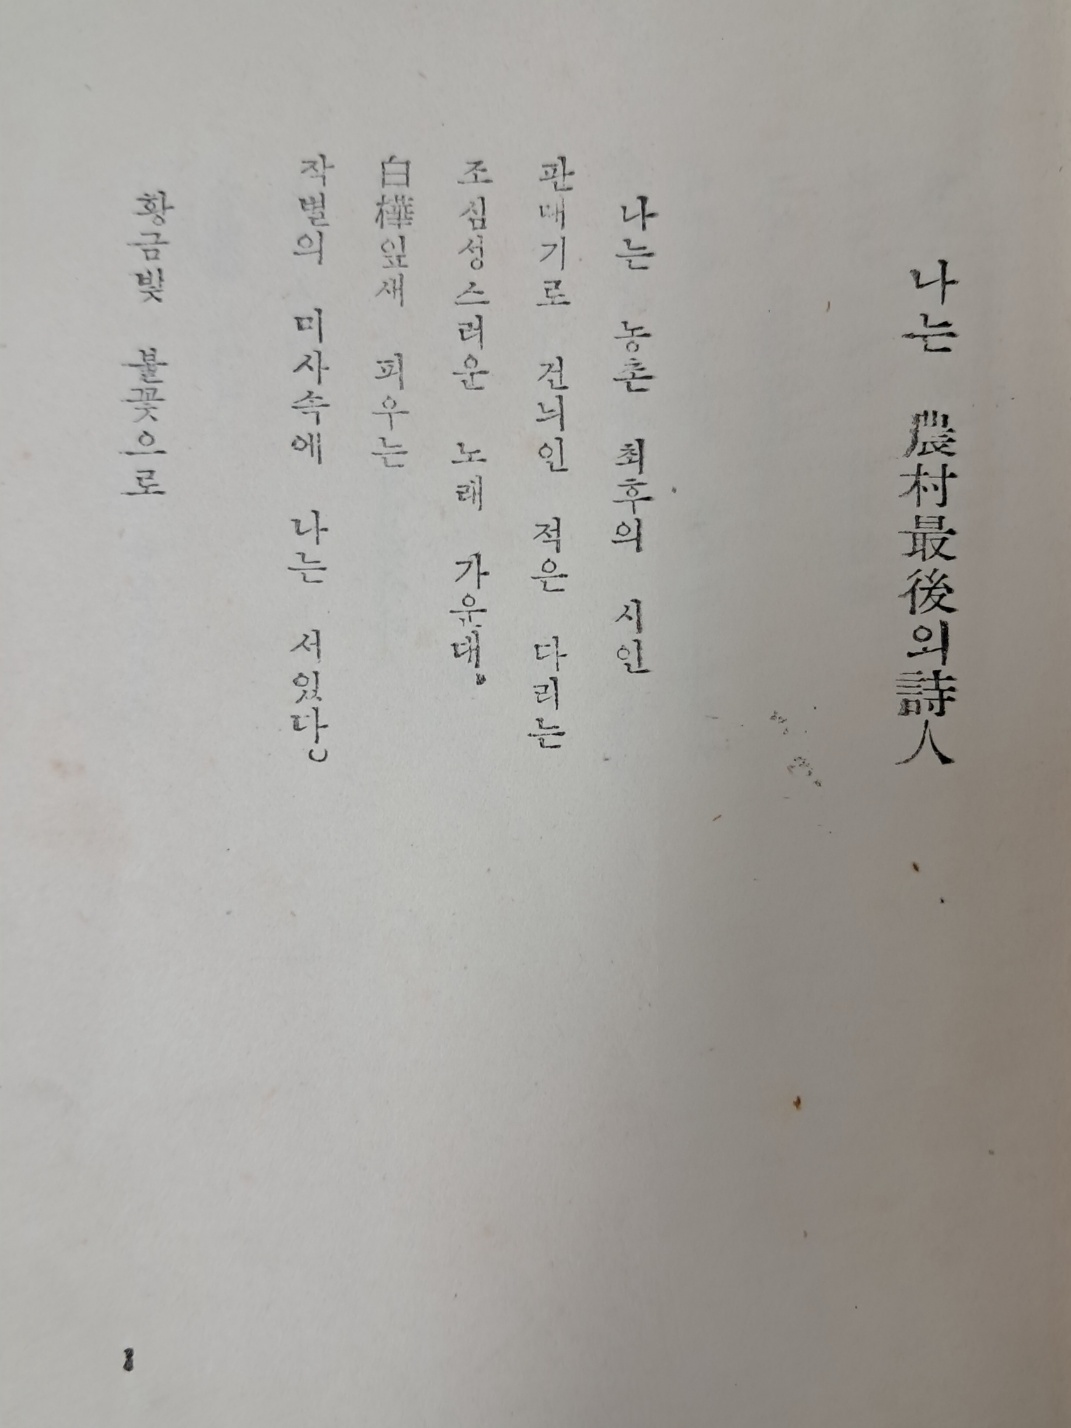 나는 農村最後의 詩人
나는 농촌 최후의 시인
판대기로 건늬인 적은 다리는
조심성스러운 노래 가운대,
白樺잎새 피우는
작별의 미사속에 나는 서있다。
황금빛 불꽃으로
1